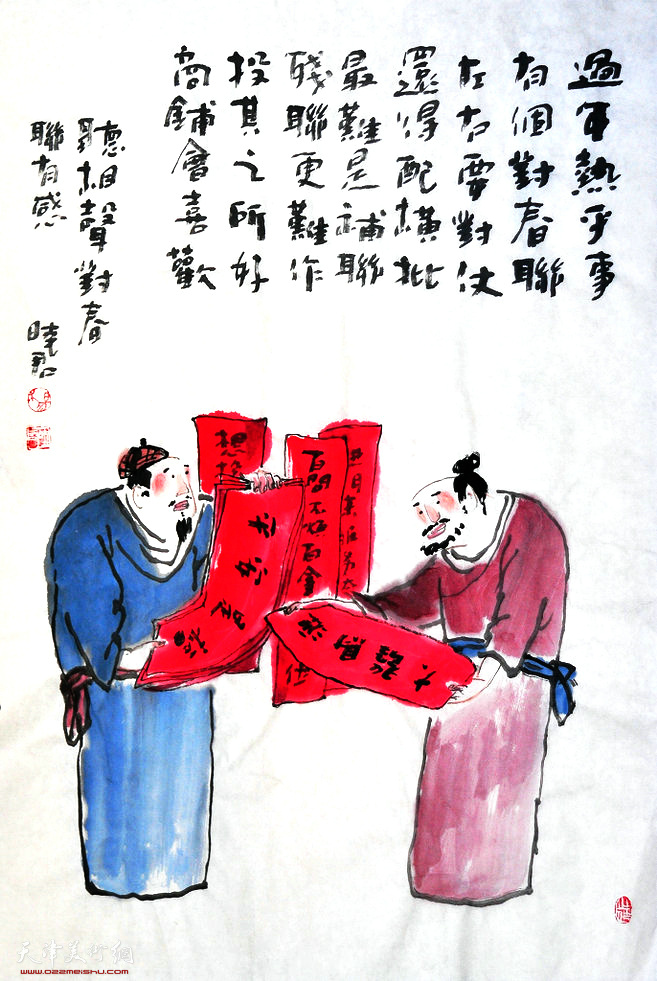 過年熱乎事
有個對春聯
左右要對仗
還得配橫批
最難是補聯
殘聯更難作
投其之所好
商鋪會喜歡
聽相聲對春
聯有感
晓君
想
天津美术网
www.022meishu.com